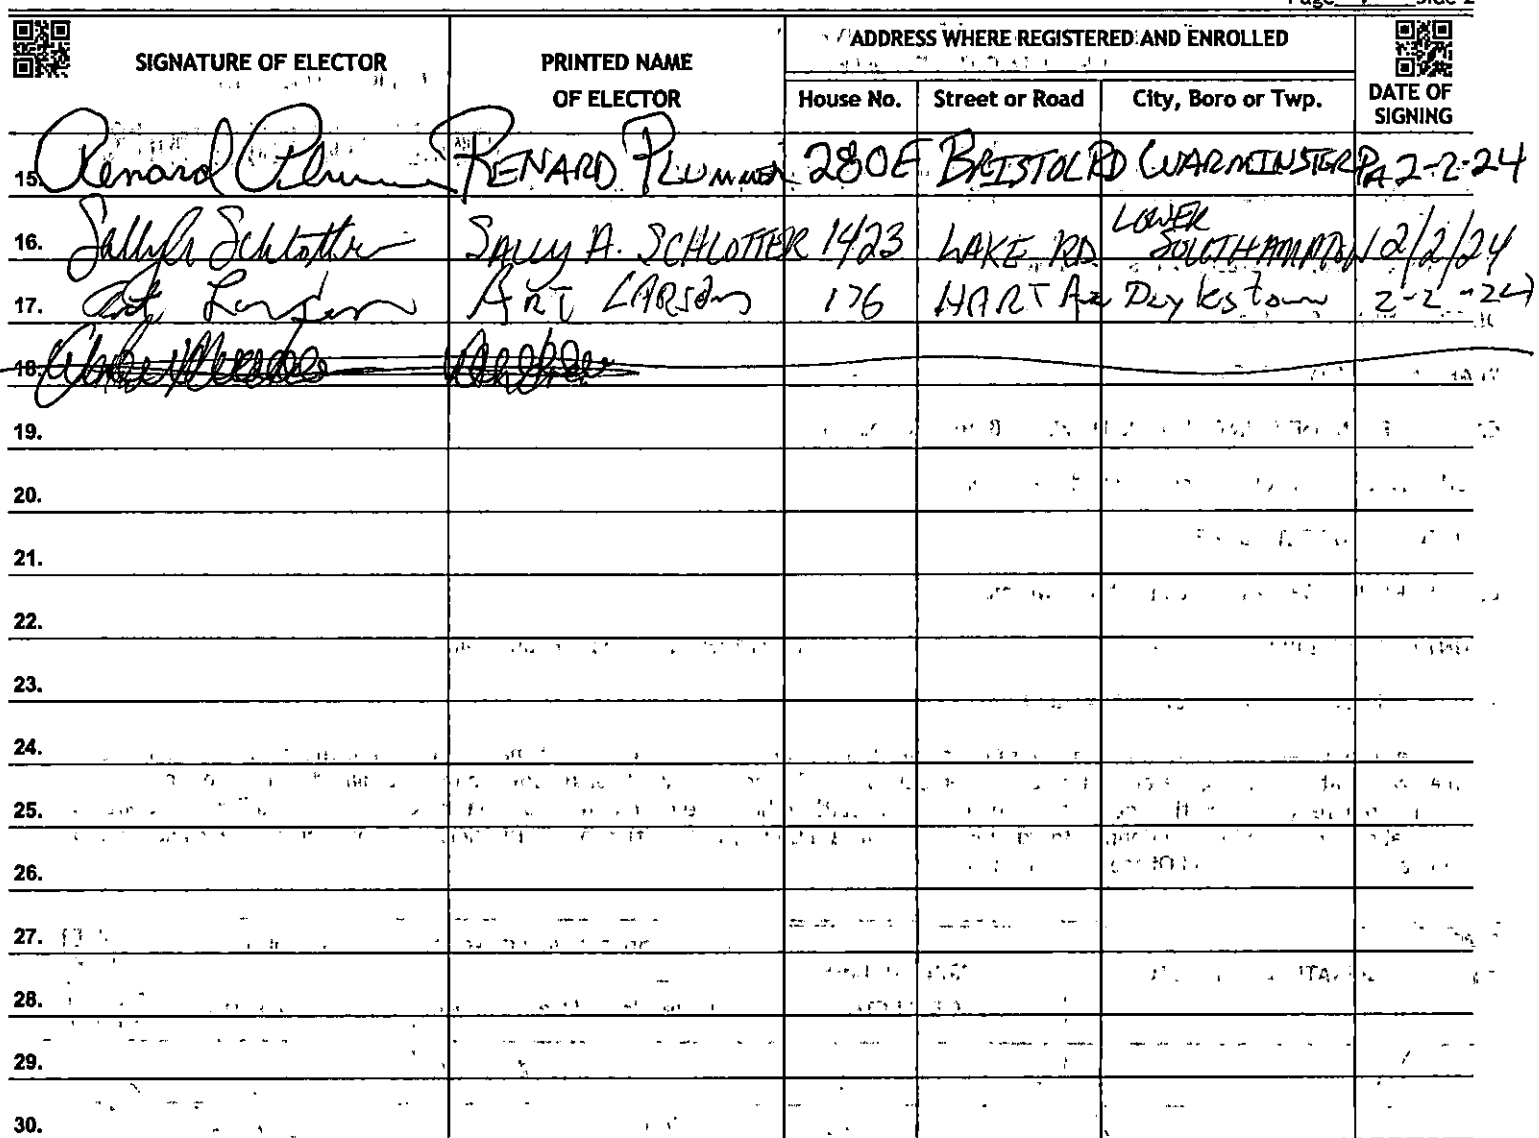 Page Side 2
SIGNATURE OF ELECTOR
PRINTED NAME
OF ELECTOR
ADDRESS WHERE REGISTERED AND ENROLLED
House No. Street or Road City, Boro or Twp.
DATE OF
SIGNING
15. Renard Plummer RENARD PLUMMER 280E BRISTOL RD WARMINSTER PA 2-2-24
16. Sally A Schlotter SALLY A. SCHLOTTER 1423 LAKE RD LOWER SOUTHAMPTON 2/2/24
17. Art Larson ART LARSON 176 HART Doylestown 2-2-24
18.
19.
20.
21.
22.
23.
24.
25.
26.
27.
28.
29.
30.